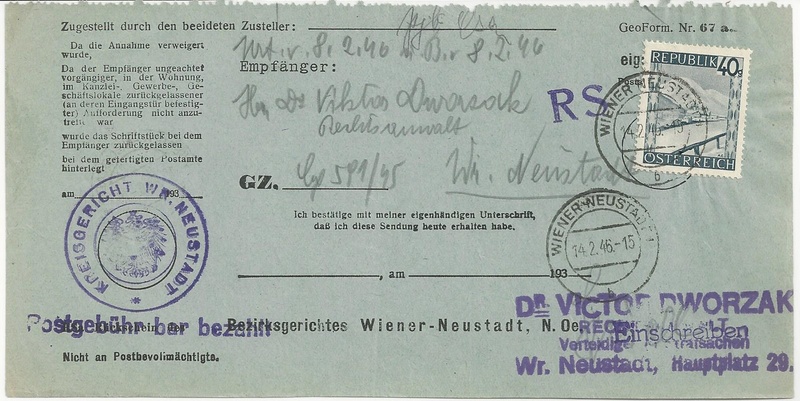 Zugestellt durch den beeideten Zusteller:
GeoForm. Nr. 67 a.
Da die Annahme verweigert
wurde,
Da der Empfänger ungeachtet
vorgängiger, in der Wohnung,
im Kanzlei-, Gewerbe-, Ge-
schäftslokale zurückgelassener
(an deren Eingangstür befestig-
ter) Aufforderung nicht anzu-
treffen war
wurde das Schriftstück bei dem
Empfänger zurückgelassen
bei dem gefertigten Postamte
hinterlegt
am 193
Urt. v. 8.2.46 B. v 8.2.46
Empfänger:
Hrn Dr Viktor Dworzak
Rechtsanwalt
GZ. Cg 591/45 Wr. Neustadt
RS
eig
REPUBLIK 40g
ÖSTERREICH
WIENER-NEUSTADT 1
14.2.46.-15
b
WIENER-NEUSTADT 1
14.2.46.-15
Ich bestätige mit meiner eigenhändigen Unterschrift,
daß ich diese Sendung heute erhalten habe.
, am 193
KREISGERICHT WR. NEUSTADT
Postgebühr bar bezahlt
Bezirksgerichtes Wiener-Neustadt, N. Oe.
Nicht an Postbevollmächtigte.
DR. VICTOR DWORZAK
Einschreiben
Wr. Neustadt, Hauptplatz 29.